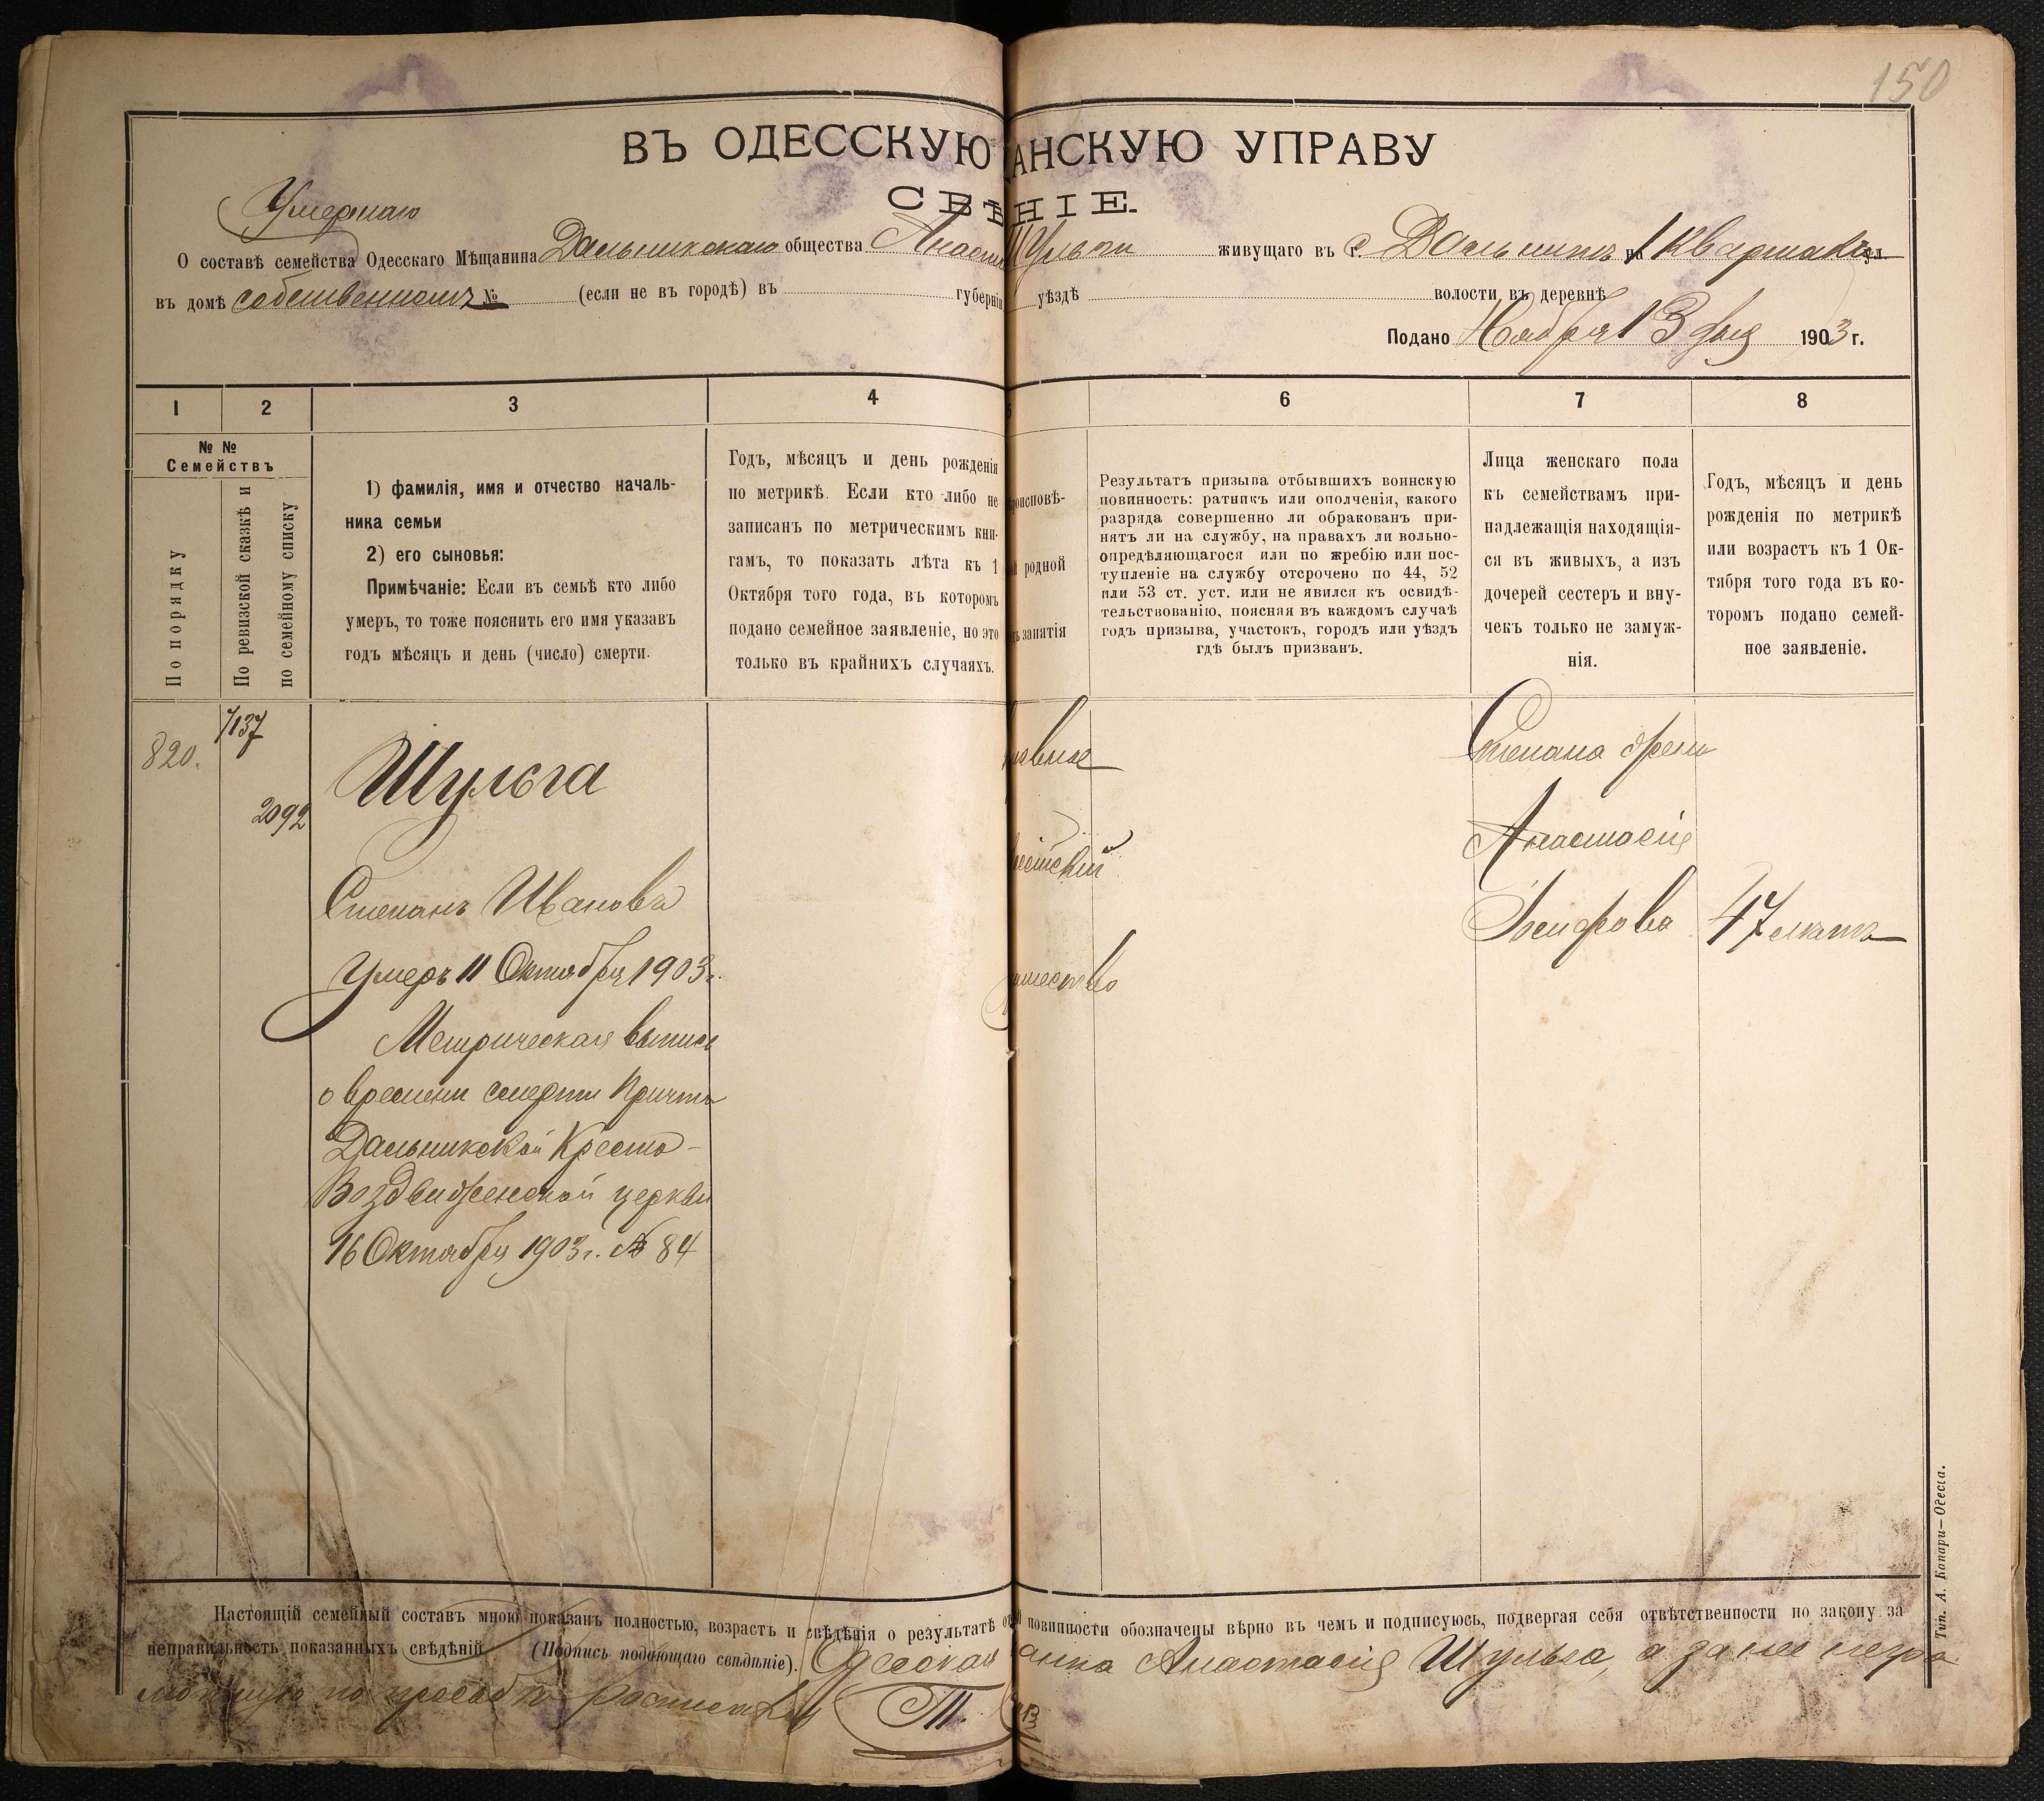 150
ВЪ ОДЕССКУЮ АНСКУЮ УПРАВУ
СВѢ НІЕ.
Умершаго
О составѣ семейства Одесскаго Мѣщанина Дальникскаго общества Анаст Шульги живущаго въ г. с Дальникъ на 1 Кварталѣ ул.
въ домѣ собственномъ № (если не въ городѣ) въ губерніи уѣздѣ волости въ деревнѣ
Подано Ноября 13 дня 1903 г.
1 2 3 4 5 6 7 8
№ №
Семействъ
По порядку
По ревизской сказкѣ и
по семейному списку
1) фамилія, имя и отчество началь-
ника семьи
2) его сыновья:
Примѣчаніе: Если въ семьѣ кто либо
умеръ, то тоже пояснить его имя указавъ
годъ мѣсяцъ и день (число) смерти.
Годъ, мѣсяцъ и день рожденія
по метрикѣ. Если кто либо не
записанъ по метрическимъ кни-
гамъ, то показать лѣта къ 1
Октября того года, въ которомъ
подано семейное заявленіе, но это
только въ крайнихъ случаяхъ.
роисповѣ-
й родной
ъ занятія
Результатъ призыва отбывшихъ воинскую
повинность: ратникъ или ополченія, какого
разряда совершенно ли обракованъ при-
нятъ ли на службу, на правахъ ли вольно-
опредѣляющагося или по жребію или пос-
тупленіе на службу отсрочено по 44, 52
или 53 ст. уст. или не явился къ освидѣ-
тельствованію, поясняя въ каждомъ случаѣ
годъ призыва, участокъ, городъ или уѣздъ
гдѣ былъ призванъ.
Лица женскаго пола
къ семействамъ при-
надлежащія находящія-
ся въ живыхъ, а изъ
дочерей сестеръ и вну-
чекъ только не замуж-
нія.
Годъ, мѣсяцъ и день
рожденія по метрикѣ
или возрастъ къ 1 Ок-
тября того года въ ко-
торомъ подано семей-
ное заявленіе.
820.
7137
2092
Шульга
Степанъ Ивановъ
Умеръ 11 Октября 1903 г.
Метрическая выпись
о времени смерти Причта
Дальникской Кресто-
Воздвиженской церкви
16 Октября 1903 г. № 84
авное
сійскій
ашество
Степана жена
Анастасія
Іосифова 47 лѣтъ
Настоящій семейный составъ мною показанъ полностью, возрастъ и свѣдѣнія о результатѣ о повинности обозначены вѣрно въ чемъ и подписуюсь, подвергая себя отвѣтственности по закону за
неправильность показанныхъ свѣдѣній (Подпись подающаго свѣдѣніе). Одесская анка Анастасія Шульга, а за нее негра
мотную по просьбѣ
Тип. А. Капари—Одесса.